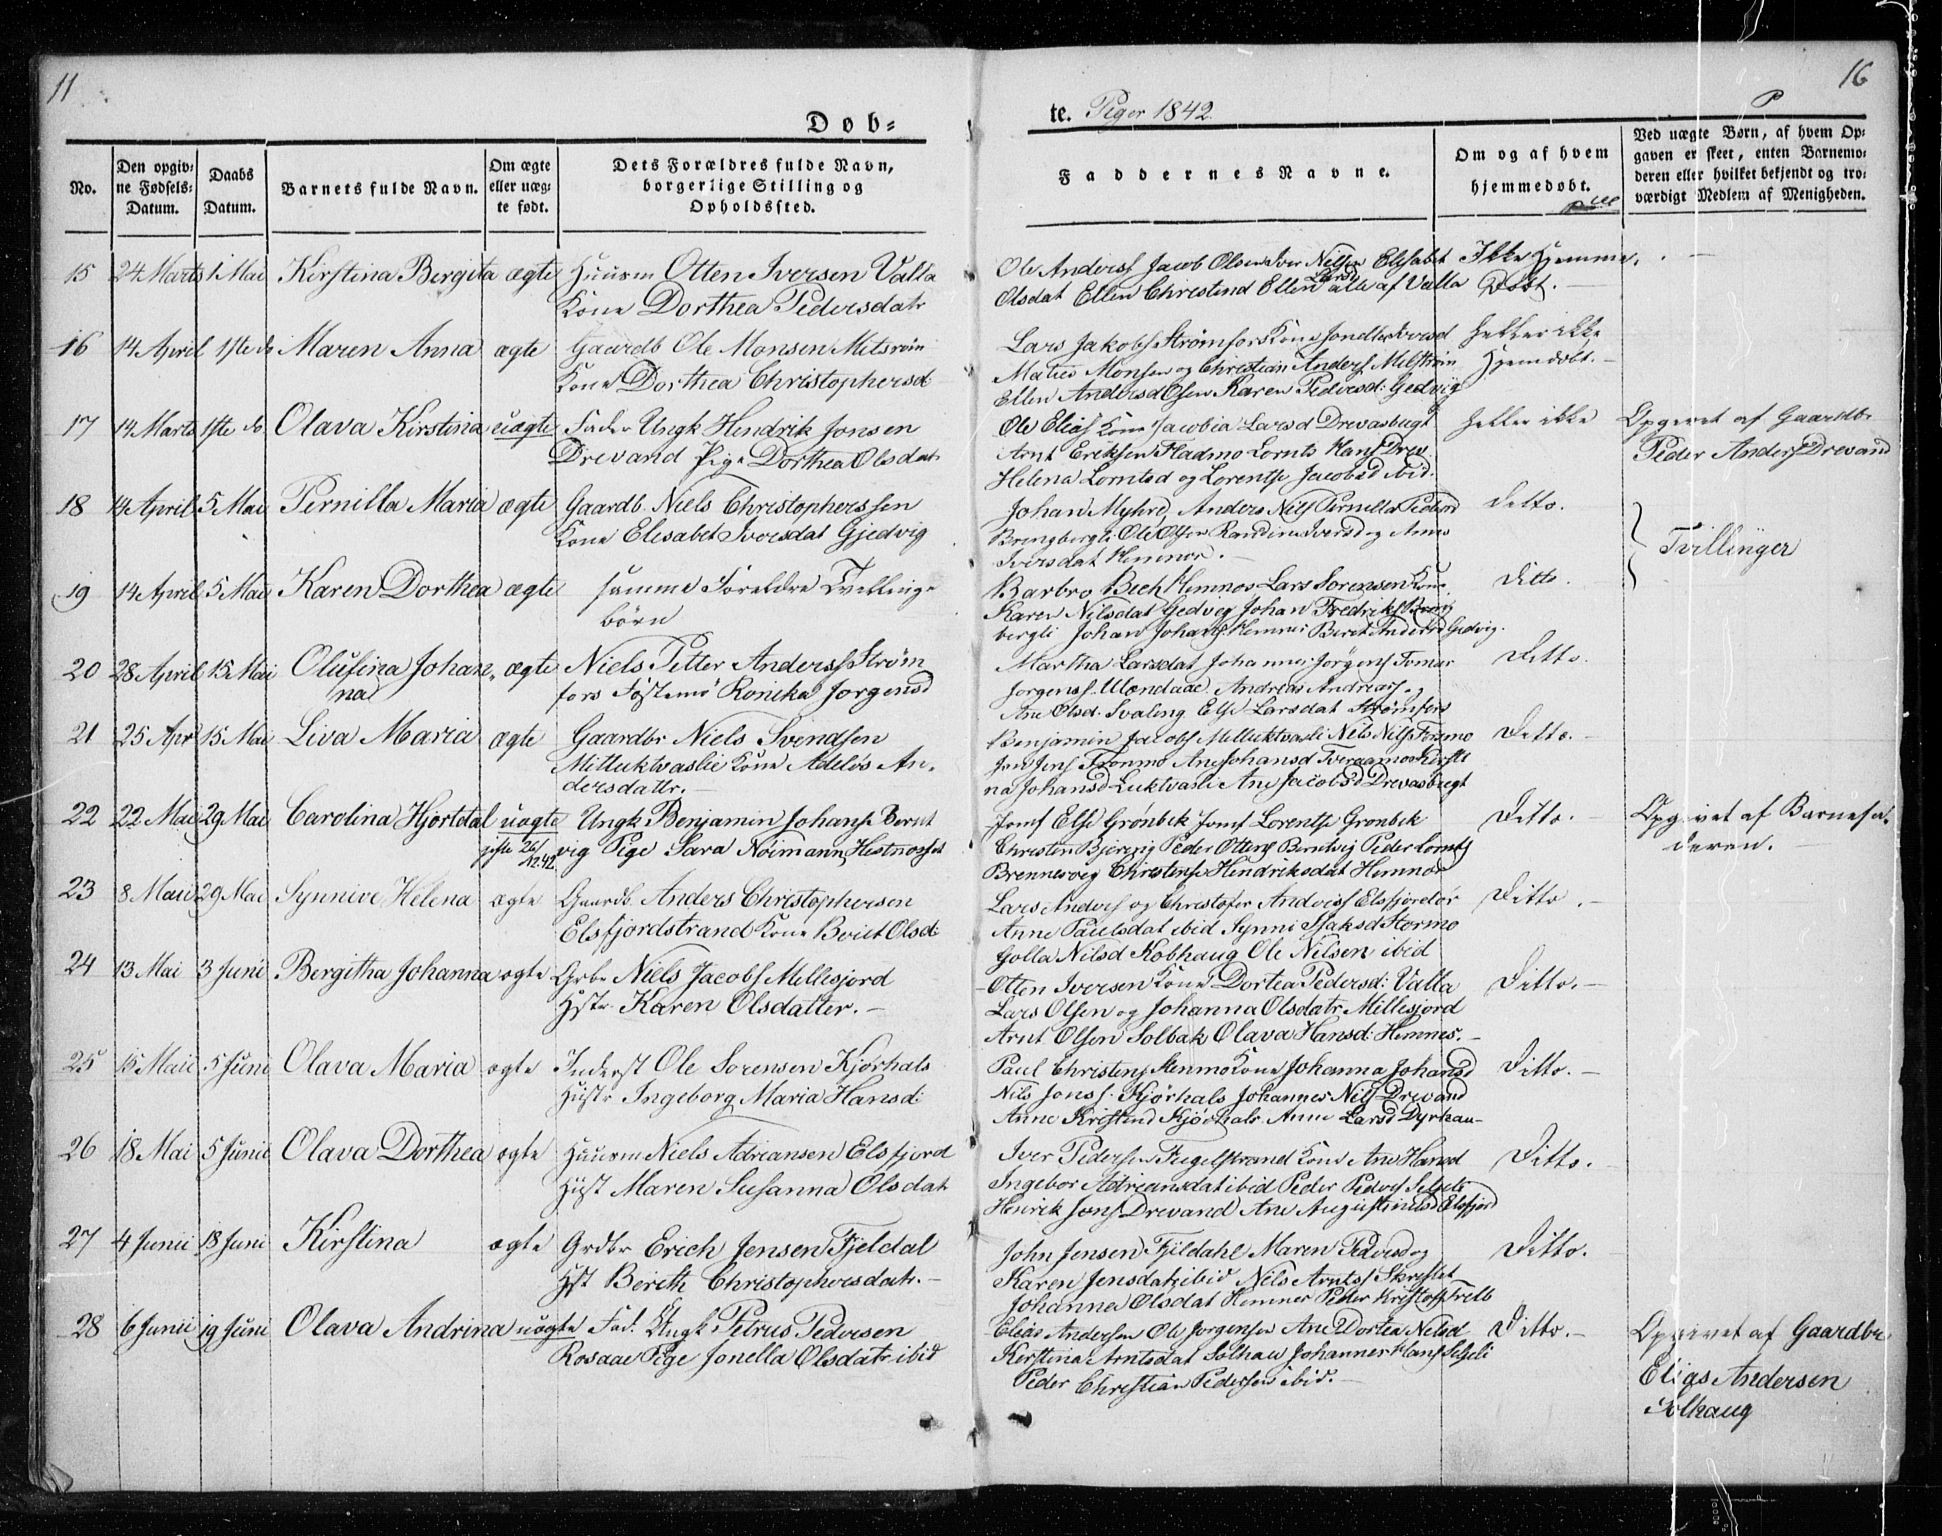 11
16
Døb-
te. Piger 1842.
P
No.
Den opgiv-
ne Fødsels-
Datum.
Daabs
Datum.
Barnets fulde Navn.
Om ægte
eller uæg-
te født.
Dets Forældres fulde Navn,
borgerlige Stilling og
Opholdssted.
Faddernes Navne.
Om og af hvem
hjemmedøbt.
Ved uægte Børn, af hvem Op-
gaven er skeet, enten Barnemo-
deren eller hvilket bekjendt og tro-
værdigt Medlem af Menigheden.
15 24 Marts 1 Mai Kirstina Bergita ægte Huusm Otten Iversen Valla
Kone Dorthea Pedersdatr
Ole Anderss Jacob Olsen Iver Nilsen Elisabet
Olsdat Ellen Christend Ellen Larsd alle af Valla
Ikke Hjemme-
Døbt.
16 14 April 1ste do Maren Anna ægte Gaardb Ole Monsen Milstrøm
Kone Dorthea Christophersd
Lars Jakobs Strømfors Kone Iversd
Maties Monsen og Christian Anders Milstrøm
Ellen Andersd Olsen Karen Pedersd: Gedvig
Heller ikke
Hjemdøbt.
17 14 Marts 1ste do Olava Kirstina uægte Fader Ungk Hendrik Jonsen
Drevand Pige Dorthea Olsdatr
Ole Elias Kone Jacobia Larsd Drevasbugt
Arnt Eriksen Fladmo Lornts Hans Drev.
Helena Lorntsd og Lorentse Jacobsd ibid.
Heller ikke
Opgivet af Gaardbr
Peder Anders Drevand
18 14 April 5 Mai Pernilla Maria ægte Gaardb. Niels Christopherssen
Kone Elisabet Iversdat Gjedvig
Johan Myhre, Anders Nils Pernilla Pedersd
Bringbergli Ole Olsen Randine Iversd og Anne
Iversdat Hemnes.
Ditto.
Tvillinger
19 14 April 5 Mai Karen Dorthea ægte samme Foreldre Tvelling-
børn
Barbro Bech Hemnes Lars Sørensen Kone
Karen Nilsdat Gedvig Johan Fredriks Bring
bergli Johan Johans Hemnes Beret Andersd Gedvig.
Ditto.
20 28 April 15 Mai Olufina Johan- ægte Niels Petter Anderss Strøm
na
fors Fostemø Konika Jorgensd
Martha Larsdat Johannes Jørgens Tomas
Jorgenss. Andreas Andreass. og
Ane Olsd. Svaling Else Larsdat Strømfors
Ditto.
21 25 Apr 15 Mai Liva Maria ægte Gaardbr Niels Svendsen
Milluktvaslie Kone Adeløs An-
dersdattr.
Benjamin Jacobs Milluktvasli Nils Nils Formo
Jens Formo Ane Johansd Tveraamo Kirsti
na Johansd Luktvasli Ane Jacobsd Drevasbugt
Ditto.
22 22 Mai 29 Mai Carolina Hjortdal uægte Ungk Benjamin Johans Bernt
vig Pige Sara Nøimann Hestnæsset
Jomf Else Grønbek Jomf Lorentse Grønbek
Christen Bjering Peder Ottes Berntvig Peder Lornts
Brennesvig Christense Hendriksdat Hemnes
Ditto.
Opgivet af Barnefa-
deren.
23 8 Mai 29 Mai Synnive Helena ægte Gaardb. Anders Christophersen
Elsfjordstrand Kone Beret Olsd:
Lars Anders og Christofer Anders Elsfjordør
Anne Paulsdat ibid Synni Isaksd Stormo
Golla Nilsd Kobhaug Ole Nilsen ibid
Ditto.
24 13 Mai 3 Juni Bergitha Johanna ægte Grbr Niels Jacobs Millesjord
Hstr Karen Olsdatter.
Otten Iversen Kone Dortea Pedersd: Valla
Lars Olsen og Johanna Olsdatr Millesjord
Arnt Olsen Solbak Olava Hansd: Hemnes.
Ditto.
25 15 Mai 5 Juni Olava Maria ægte Inderst Ole Sorensen Kjørhals
Hustr Ingeborg Maria Hansd:
Paul Christens Stenmo Kone Johanna Johansd
Nils Jonss. Kjørhals Johannes Nils Drevand
Anne Kristend Kjørhals Anne Larsd
Ditto.
26 18 Mai 5 Junii Olava Dorthea ægte Huusm Niels Adriansen Elsfjord
Hust Maren Susanna Olsdat
Iver Pedersen Fugelstrand Kone Ane Hansd
Ingebor Adriansdat ibid Peder Peders Selseli
Henrik Jons Drevand Ane Augustinusd Elsfjord
Ditto.
27 4 Junii 18 Juni Kirstina ægte Grdbr Erich Jensen Fjeldal
Hst Bereth Christophersdatr.
John Jensen Fjeldahl Maren Pedersd og
Karen Jensdat ibid Nils Arntss
Johanna Olsdat Hemnes Petter Kristoffs
Ditto.
28 6 Junii 19 Juni Olava Andrina uægte Fad. Ungk Petrus Pedersen
Rosaae Pige Jonella Olsdatr ibid
Elias Andersen Ole Jorgensen Ane Dortea Nilsd
Kerstina Arntsdat Solhau Johannes Hans Selseli
Peder Christian Pedersen ibid.
Ditto.
Opgivet af Gaardbr
Elias Andersen
Solhaug